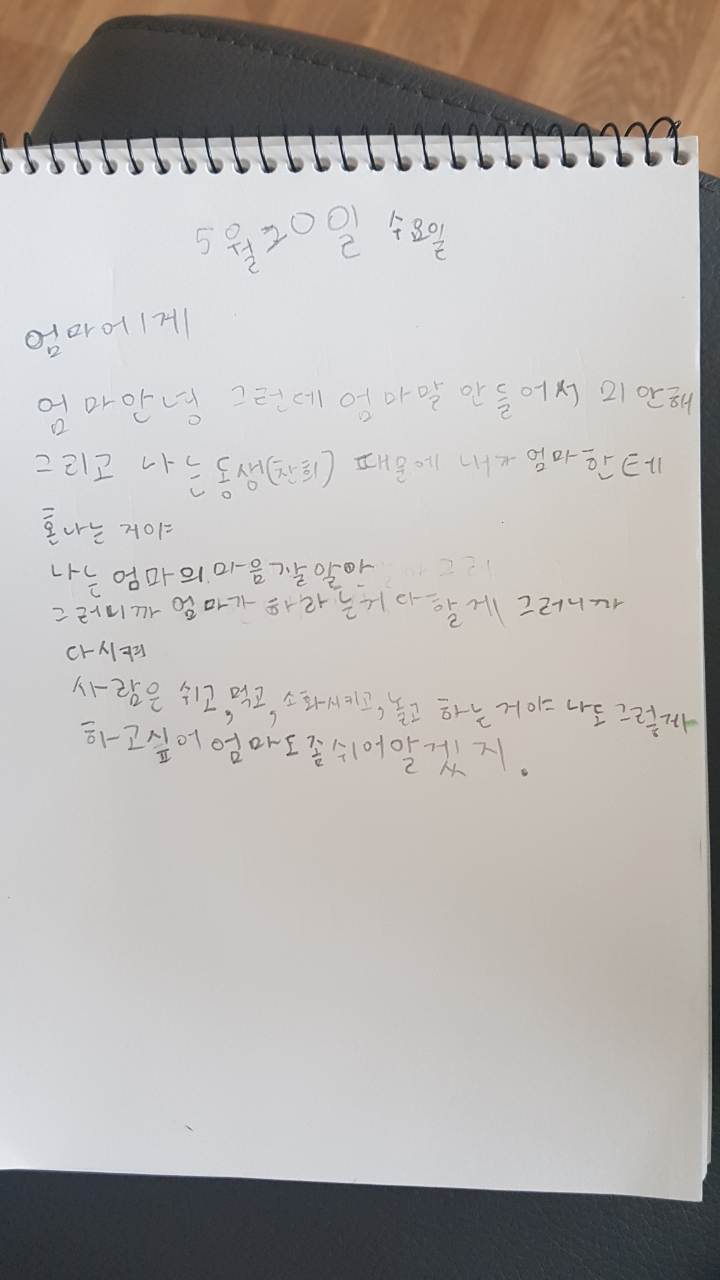 5월20일 수요일
엄마에게
엄마안녕 그런데 엄마말 안들어서 미안해
그리고 나는동생(찬희) 때문에 내가 엄마한테
혼나는 거야
나는 엄마의 마음 잘알아
그러니까 엄마가 하라는거 다할게 그러니까
다시켜
사람은 쉬고, 먹고, 소화시키고, 놀고 하는거야 나도 그렇게
하고싶어 엄마도좀쉬어알겠지.